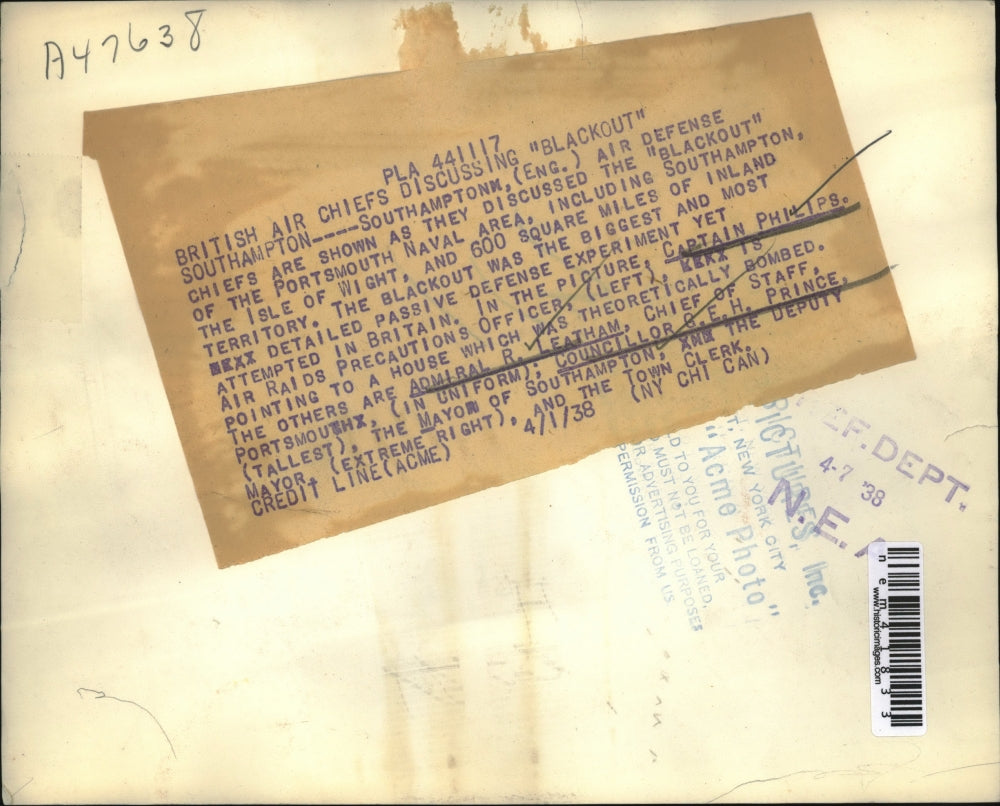 A47638
PLA 441117
BRITISH AIR CHIEFS DISCUSSING "BLACKOUT"
SOUTHAMPTON----SOUTHAMPTONX, (ENG.) AIR DEFENSE
CHIEFS ARE SHOWN AS THEY DISCUSSED THE "BLACKOUT"
OF THE PORTSMOUTH NAVAL AREA, INCLUDING SOUTHAMPTON,
THE ISLE OF WIGHT, AND 600 SQUARE MILES OF INLAND
TERRITORY. THE BLACKOUT WAS THE BIGGEST AND MOST
DETAILED PASSIVE DEFENSE EXPERIMENT YET
ATTEMPTED IN BRITAIN. IN THE PICTURE, CAPTAIN PHILIPS.
AIR RAIDS PRECAUTIONS OFFICER (LEFT), IS
POINTING TO A HOUSE WHICH WAS THEORETICALLY BOMBED.
THE OTHERS ARE ADMIRAL R. LEATHAM, CHIEF OF STAFF,
PORTSMOUTHX, (IN UNIFORM); COUNCILLOR G.E.H. PRINCE,
(TALLEST), THE MAYOR OF SOUTHAMPTON, THE DEPUTY
MAYOR, (EXTREME RIGHT), AND THE TOWN CLERK.
CREDIT LINE(ACME) 4/1/38 (NY CHI CAN)
EF. DEPT.
4-7 '38
N.E.A
PICTURES, Inc.
T., NEW YORK CITY
"Acme Photo"
D TO YOU FOR YOUR
MUST NOT BE LOANED,
R ADVERTISING PURPOSES
PERMISSION FROM US
nem41833
www.historicimages.com